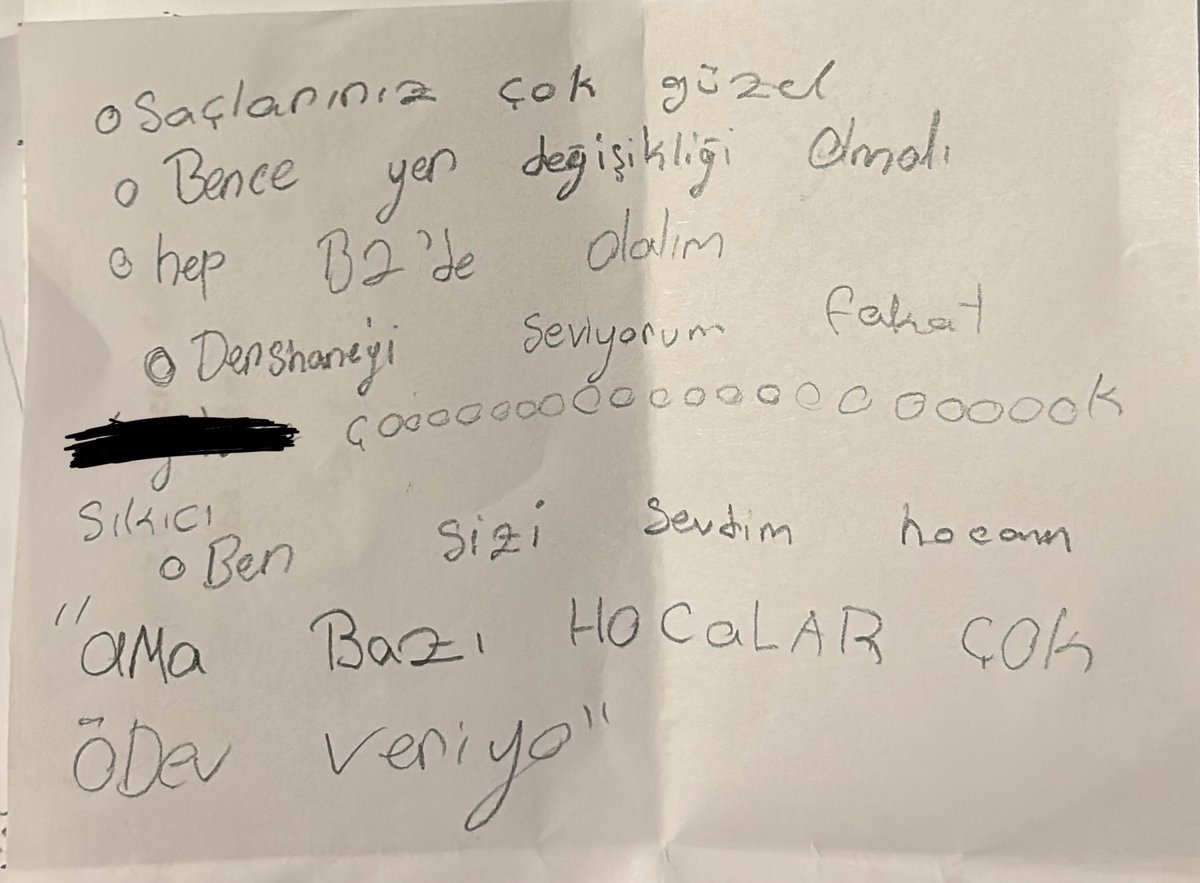 Saçlarınız çok güzel
Bence yer değişikliği olmalı
hep B2'de olalım
Dershaneyi seviyorum fakat
çooooooooooooooooooook
sıkıcı
Ben sizi sevdim hocam
"aMa BaZı HOCaLAR ÇOk
ÖDev veriyo"